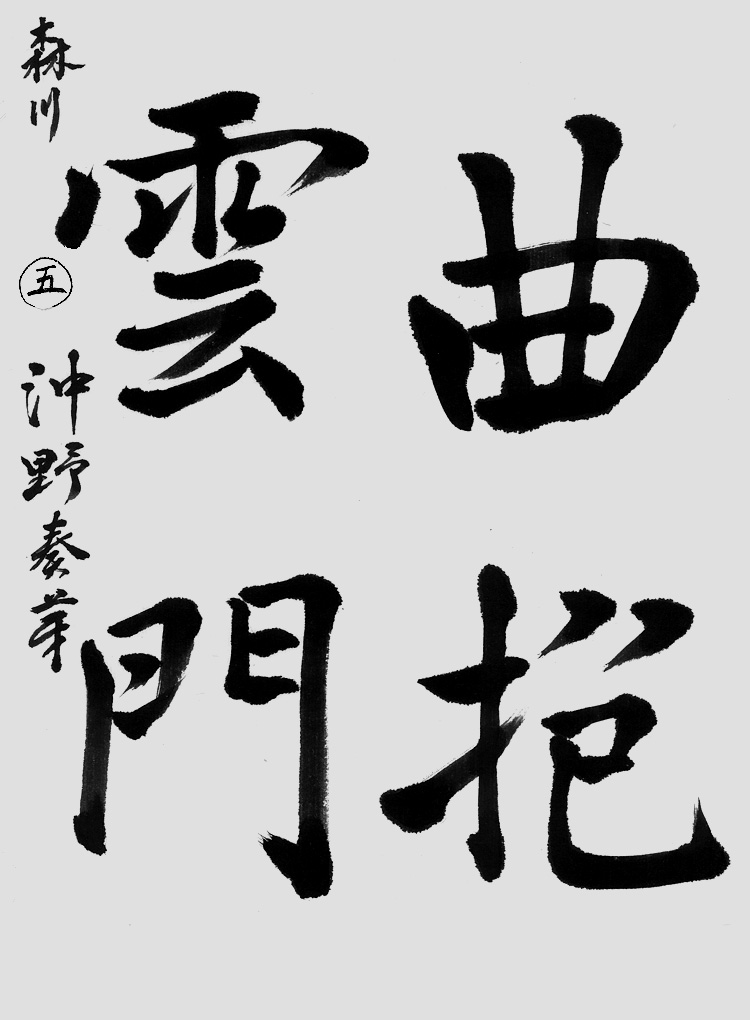 曲挹
雲門
森川
五 沖野奏芽